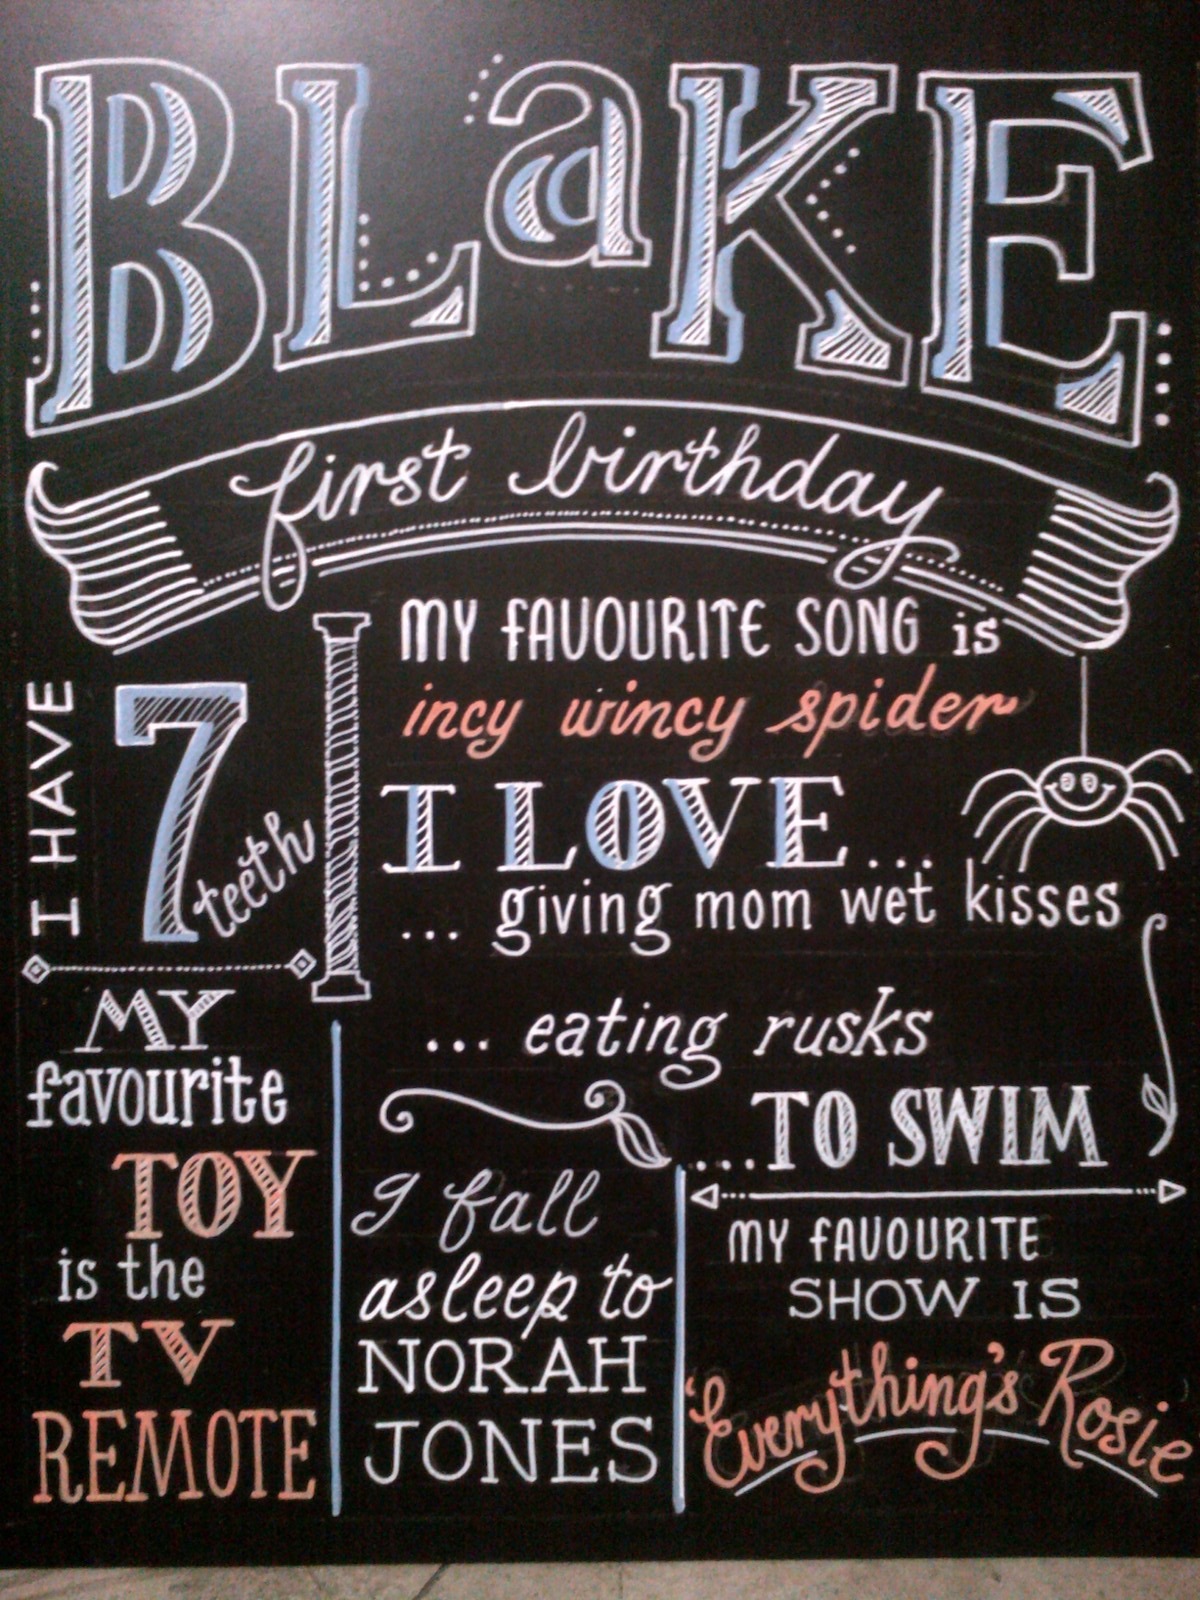 BLaKE
first birthday
I HAVE
7
teeth
MY FAVOURITE SONG is
incy wincy spider
I LOVE...
... giving mom wet kisses
... eating rusks
....TO SWIM
MY
favourite
TOY
is the
TV
REMOTE
I fall
asleep to
NORAH
JONES
MY FAVOURITE
SHOW IS
'Everything's Rosie